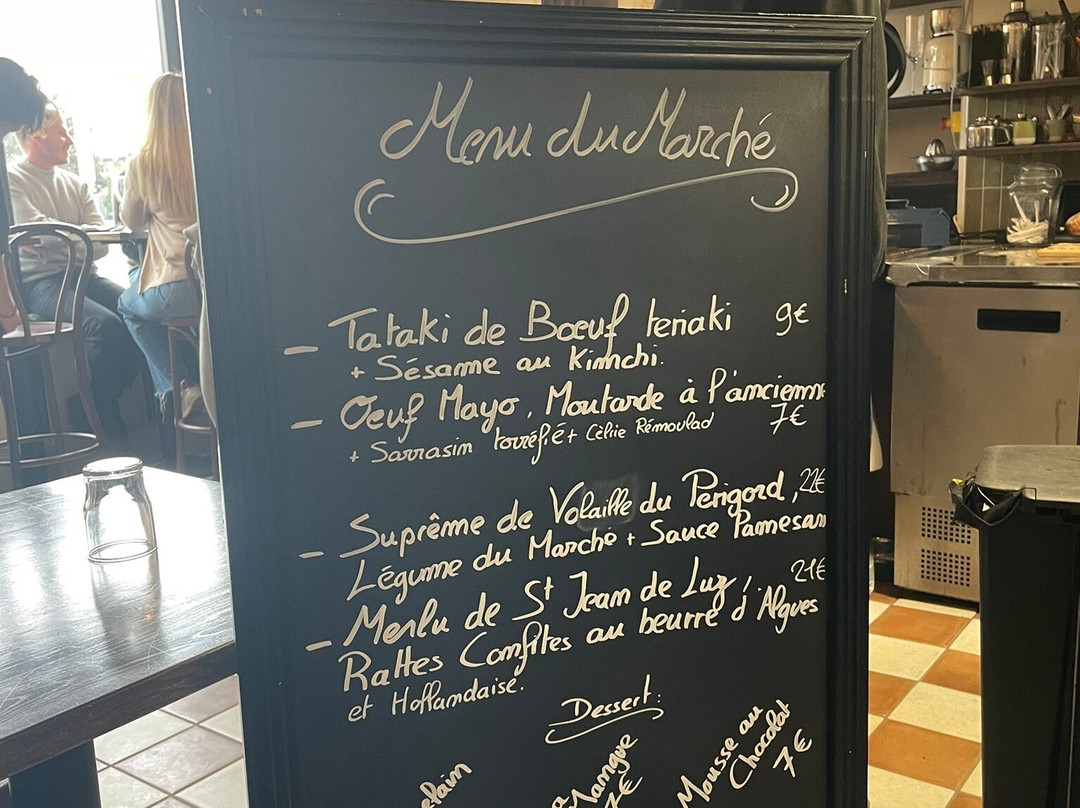 Menu du Marché
- Tataki de Bœuf teriaki 9€
+ Sésame au Kimchi.
- Oeuf Mayo, Moutarde à l'ancienne
+ Sarrasin torréfié + Célie Rémoulad 7€
- Suprême de Volaille du Périgord, 22€
Légume du Marché + Sauce Parmesan
- Merlu de St Jean de Luz, 21€
Rattes Confites au beurre d'Algues
et Hollandaise.
Dessert:
Mangue
7€
Mousse au
Chocolat
7€